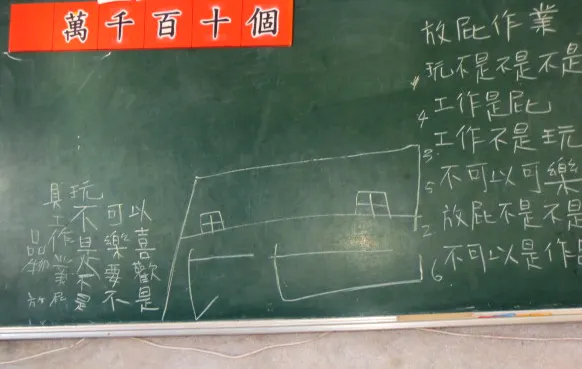 萬千百十個
放屁作業
玩不是不是不是
4 工作是屁
工作不是玩
3
5 不可以可樂
放屁不是不是
2
6 不可以是作
以喜歡是
可樂要不
玩不是不是
具工作業
品物